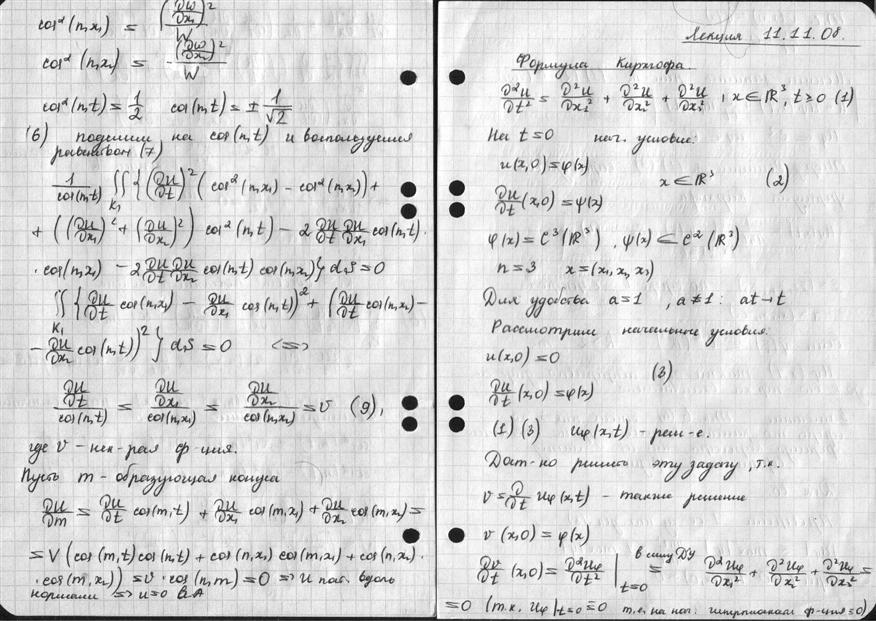 cos²(n,x₁) = (∂w/∂x₁)² / W
cos²(n,x₂) = -(∂w/∂x₂)² / W
cos²(n,t) = 1/2 cos(n,t) = ± 1/√2
(6) поделим на cos(n,t) и воспользуемся
равенством (7)
1/cos(n,t) ∬_K₁ {(∂u/∂t)² (cos²(n,x₁) - cos²(n,x₂)) +
+ ((∂u/∂x₁)² + (∂u/∂x₂)²) cos²(n,t) - 2 ∂u/∂t ∂u/∂x₁ cos(n,t)·
· cos(n,x₁) - 2 ∂u/∂t ∂u/∂x₂ cos(n,t) cos(n,x₂)} dS = 0
∬_K₁ {(∂u/∂t cos(n,x₁) - ∂u/∂x₁ cos(n,t))² + (∂u/∂t cos(n,x₂) -
- ∂u/∂x₂ cos(n,t))²} dS = 0 <=>
∂u/∂t / cos(n,t) = ∂u/∂x₁ / cos(n,x₁) = ∂u/∂x₂ / cos(n,x₂) = v (9),
где v - нек-рая ф-ция.
Пусть m - образующая конуса
∂u/∂m = ∂u/∂t cos(m,t) + ∂u/∂x₁ cos(m,x₁) + ∂u/∂x₂ cos(m,x₂) =
= v (cos(m,t) cos(n,t) + cos(n,x₁) cos(m,x₁) + cos(n,x₂)·
· cos(m,x₂)) = v · cos(n,m) = 0 => u вдоль
нормали => u=0 в A
Лекция 11.11.08.
Формула Кирхгофа.
∂²u/∂t² = ∂²u/∂x₁² + ∂²u/∂x₂² + ∂²u/∂x₃² , x ∈ ℝ³, t ≥ 0 (1)
На t=0 нач. условие:
u(x,0) = φ(x)
x ∈ ℝ³ (2)
∂u/∂t (x,0) = ψ(x)
φ(x) = C³(ℝ³) , ψ(x) ∈ C²(ℝ³)
n=3 x = (x₁, x₂, x₃)
Для удобства a=1 , a≠1: at → t
Рассмотрим начальные условия:
u(x,0) = 0
(3)
∂u/∂t (x,0) = φ(x)
(1) (3) u_φ(x,t) - реш-е.
Дост-но решить эту задачу, т.к.
v = ∂/∂t u_φ(x,t) - также решение
v(x,0) = φ(x)
∂v/∂t (x,0) = ∂²u_φ/∂t² |_t=0 = в силу ДУ ∂²u_φ/∂x₁² + ∂²u_φ/∂x₂² + ∂²u_φ/∂x₃² =
= 0 (т.к. u_φ|_t=0 = 0 т.е. на нач. ф-ция ≡ 0)